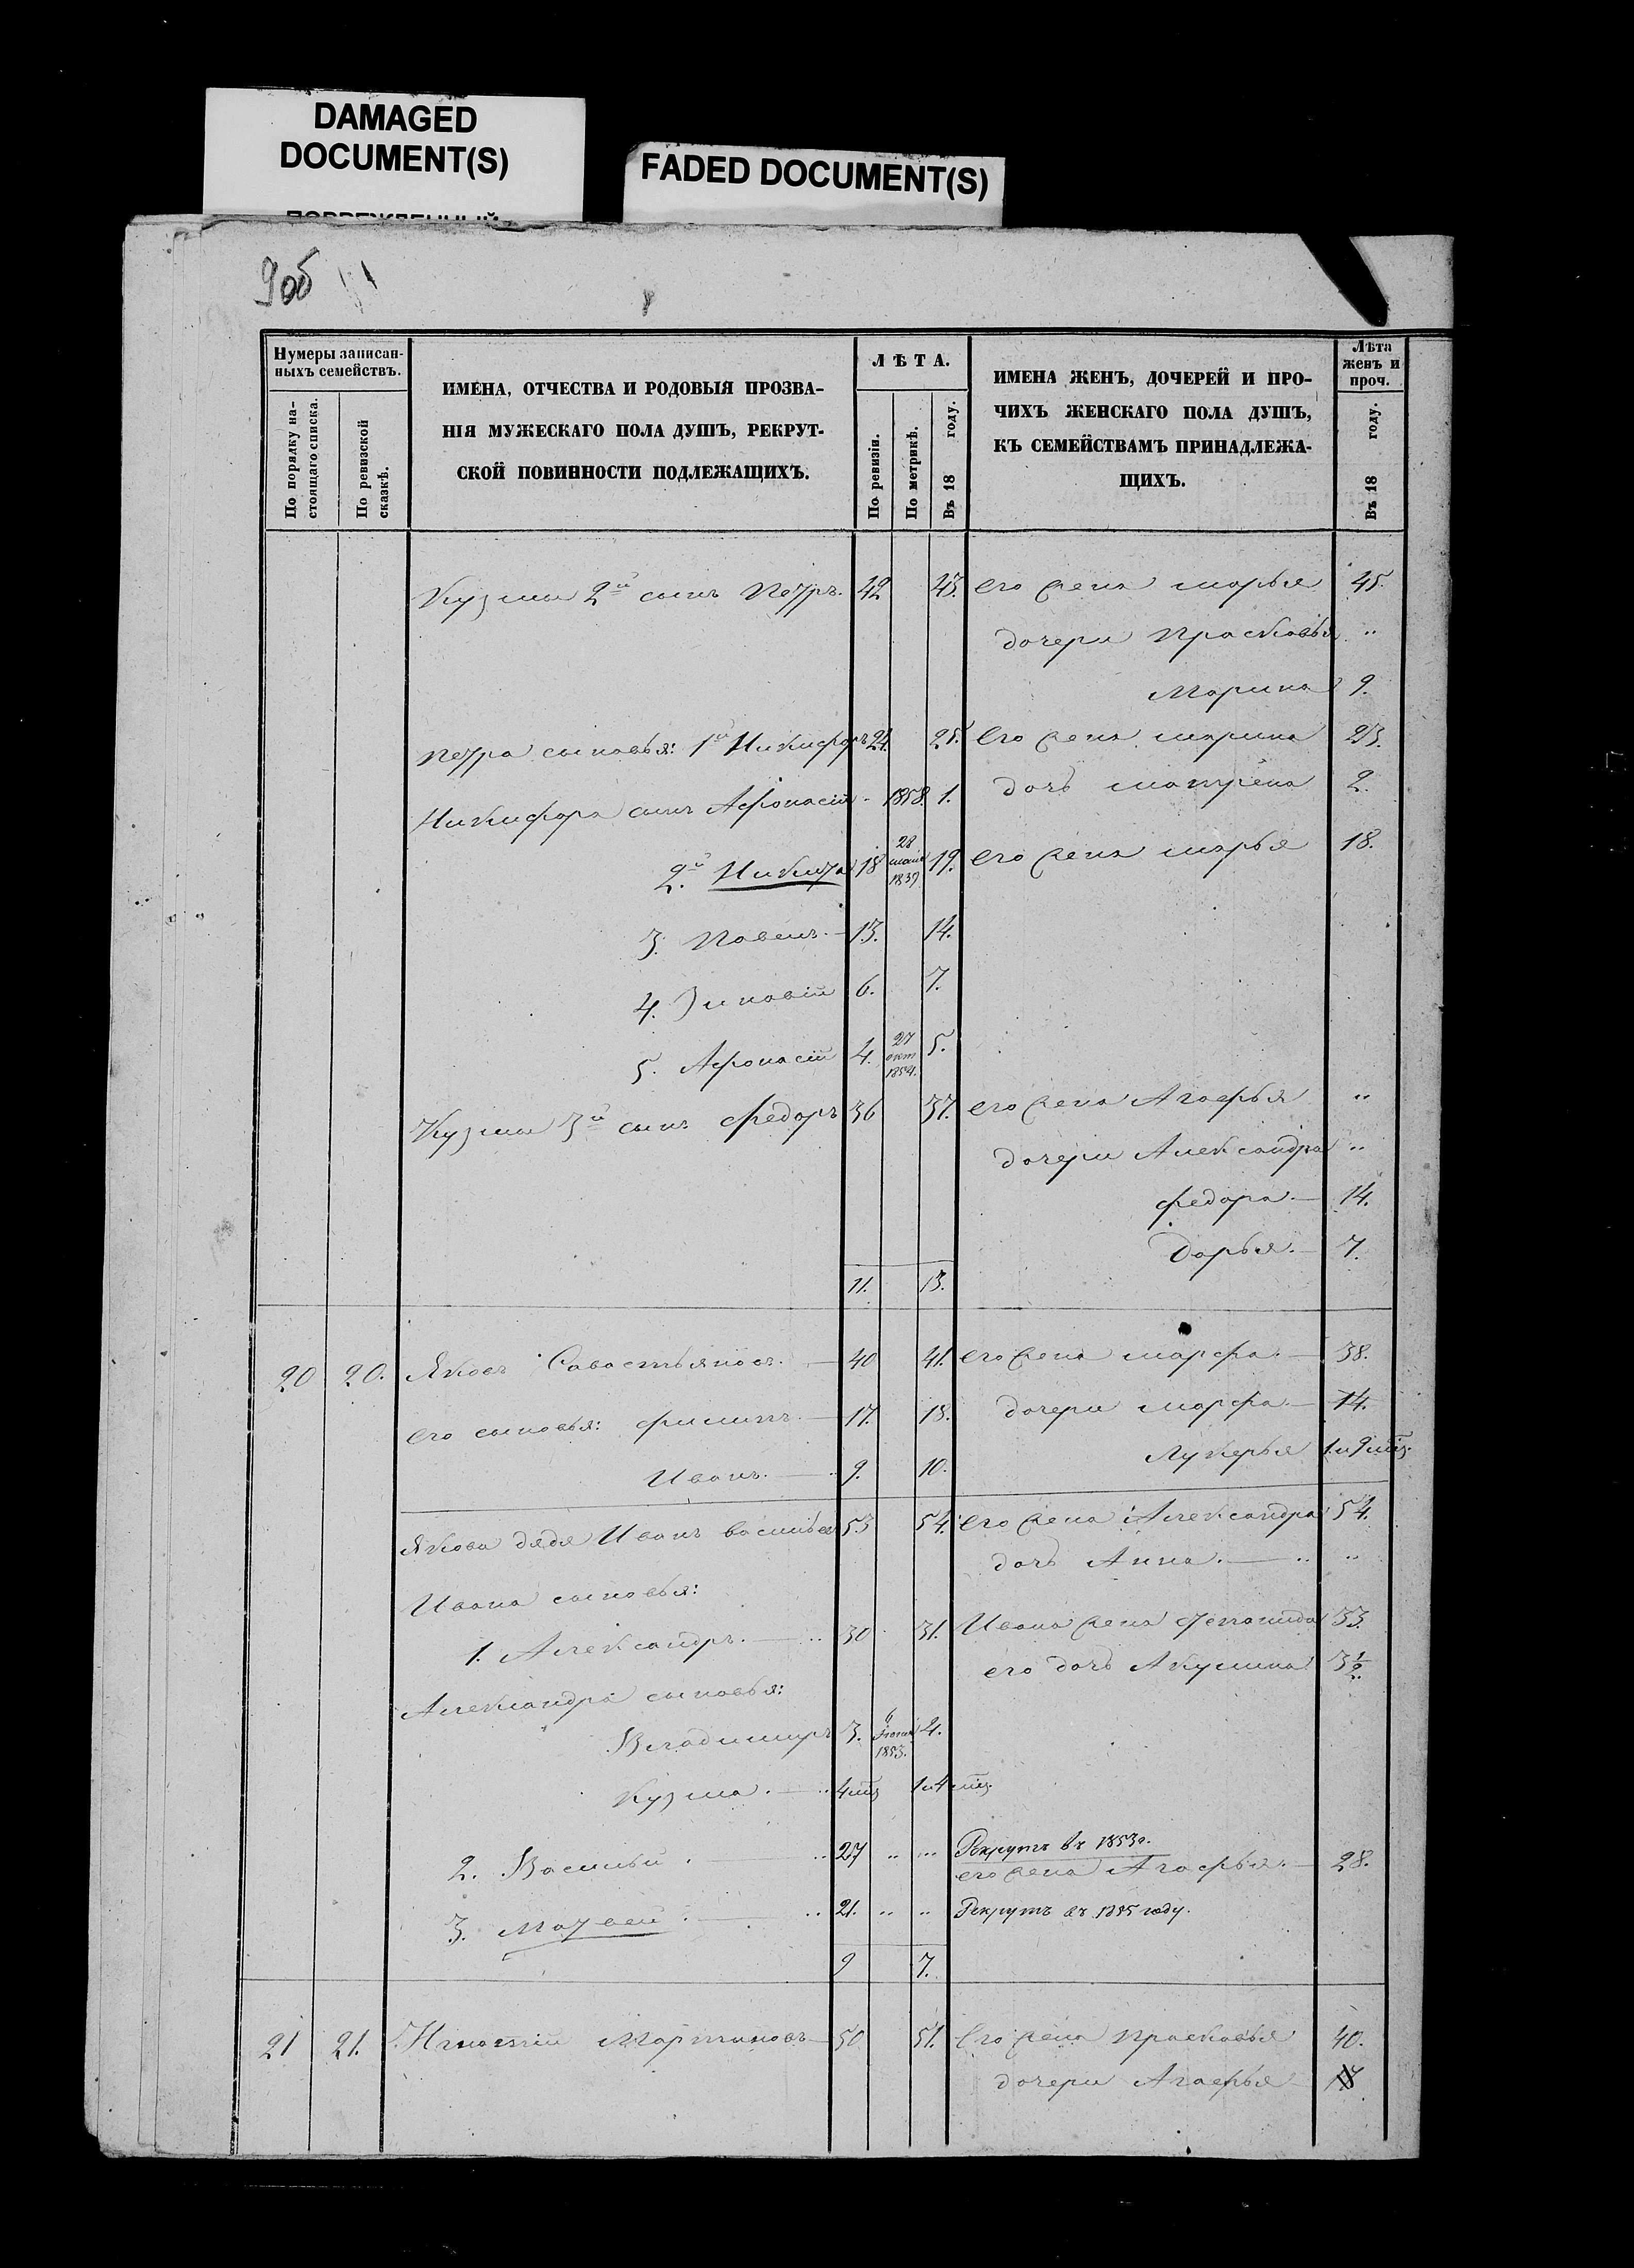 DAMAGED
DOCUMENT(S)
FADED DOCUMENT(S)
9об
Нумеры записан-
ныхъ семействъ.
По порядку на-
стоящаго списка.
По ревизской
сказкѣ.
ИМЕНА, ОТЧЕСТВА И РОДОВЫЯ ПРОЗВА-
НІЯ МУЖЕСКАГО ПОЛА ДУШЪ, РЕКРУТ-
СКОЙ ПОВИННОСТИ ПОДЛЕЖАЩИХЪ.
ЛѢТА.
По ревизіи.
По метрикѣ.
Въ 18 году.
ИМЕНА ЖЕНЪ, ДОЧЕРЕЙ И ПРО-
ЧИХЪ ЖЕНСКАГО ПОЛА ДУШЪ,
КЪ СЕМЕЙСТВАМЪ ПРИНАДЛЕЖА-
ЩИХЪ.
Лѣта
женъ и
проч.
Въ 18 году.
Кузмы 2й сынъ Петръ. 42 43. его жена марья 45.
дочери Прасковья "
Марина 9.
Петра сыновья: 1й Никифоръ 24. 25. Его жена марина 23.
Никифора сынъ Афонасій - 1858. 1. дочь матрена 2.
2й Никита 18 28 маія 1839 19. его жена марья 18.
3. Павелъ. 13. 14.
4. Зиновій 6. 7.
5. Афонасій 4. 27 окт 1854. 5.
Кузмы 3й сынъ Федоръ 36 37. его жена Агафья "
дочери Александра "
федора 14.
Дарья. 7.
11. 13.
20 20. Яковъ Савостьяновъ. 40 41. его жена марфа. 38.
его сыновья: филипъ. 17. 18. дочери марфа. 14.
Иванъ. 9. 10. Лукерья 1. и 9 мѣц.
Якова дядя Иванъ васильев 53 54. его жена Александра 54.
дочь Анна. "
Ивана сыновья:
1. Александръ. 30 31. Ивана жена степанида 33.
его дочь Акулина 3½.
Александра сыновья:
Владимиръ 3. 6 Іюня 1853. 4.
Кузма. 4 мѣц 1 и 4 мѣц.
2. Василий. 27 " " Рекрутъ въ 1853 г.
его жена Агафья. 28.
3. Матвей. 21. " " Рекрутъ въ 1855 году.
9 7.
21 21. Игнатій Мартиновъ 50 51. Его жена прасковья 40.
дочери Агафья